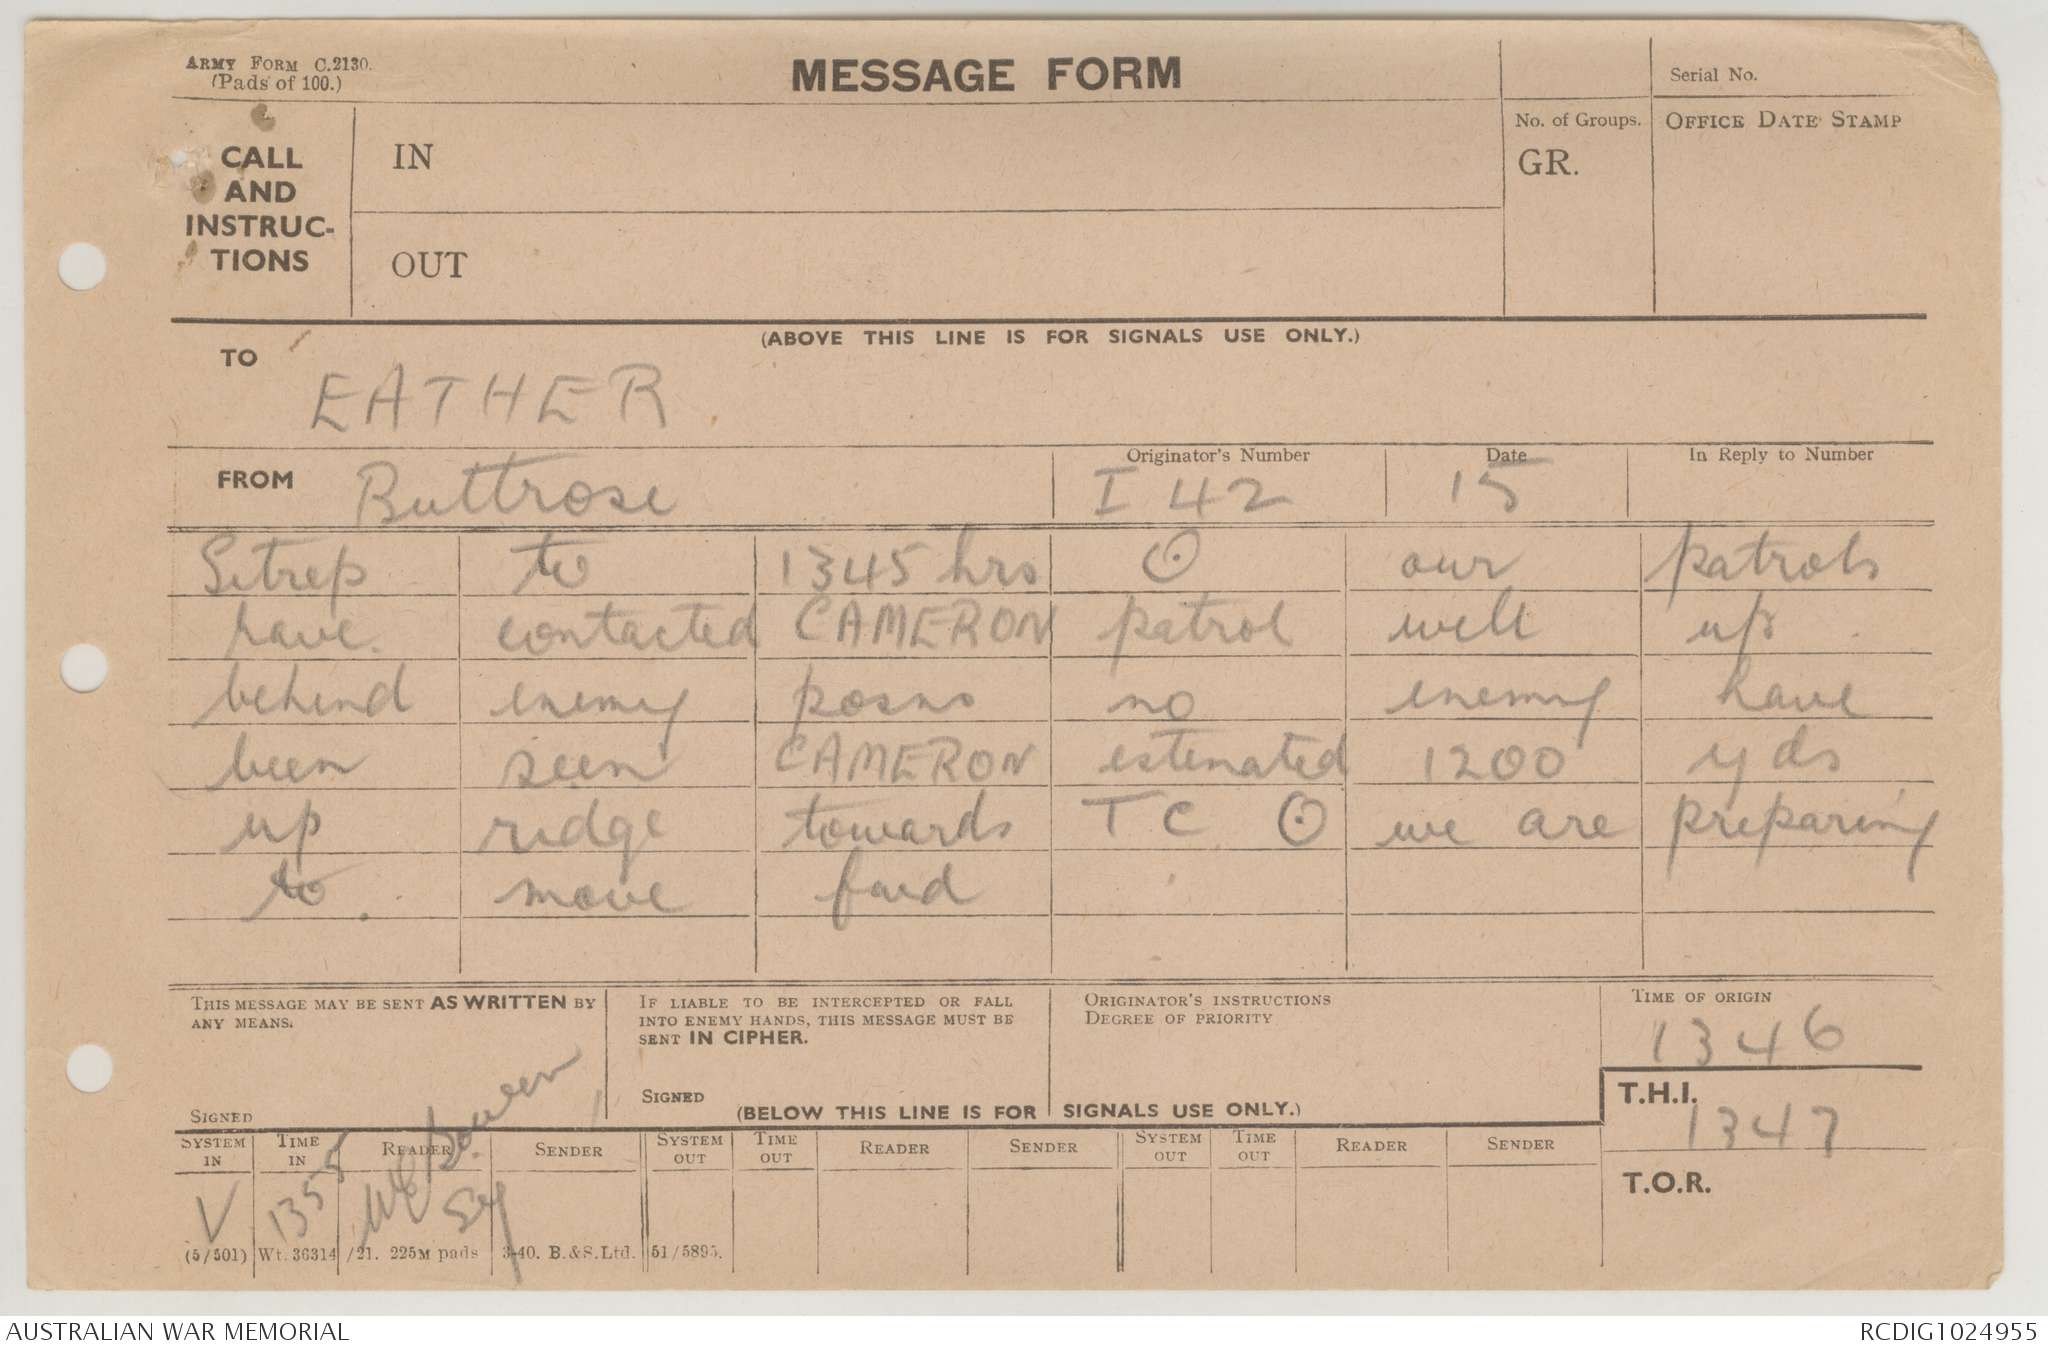 ARMY FORM C.2130.
(Pads of 100.)
MESSAGE FORM
Serial No.
CALL
AND
INSTRUC-
TIONS
IN
OUT
No. of Groups.
GR.
OFFICE DATE STAMP
(ABOVE THIS LINE IS FOR SIGNALS USE ONLY.)
TO EATHER
FROM Buttrose
Originator's Number I 42
Date 15
In Reply to Number
Sitrep to 1345 hrs ⊙ our patrols
have contacted CAMERON patrol well up
behind enemy posns no enemy have
been seen CAMERON estimated 1200 yds
up ridge towards TC ⊙ we are preparing
to move fwd
THIS MESSAGE MAY BE SENT AS WRITTEN BY
ANY MEANS.
SIGNED
IF LIABLE TO BE INTERCEPTED OR FALL
INTO ENEMY HANDS, THIS MESSAGE MUST BE
SENT IN CIPHER.
SIGNED
ORIGINATOR'S INSTRUCTIONS
DEGREE OF PRIORITY
TIME OF ORIGIN
1346
T.H.I.
1347
T.O.R.
(BELOW THIS LINE IS FOR SIGNALS USE ONLY.)
SYSTEM IN TIME IN READER SENDER SYSTEM OUT TIME OUT READER SENDER SYSTEM OUT TIME OUT READER SENDER
V 1355
(5/501) Wt. 36314/21. 225M pads 3-40. B.&S.Ltd. 51/5895.
AUSTRALIAN WAR MEMORIAL
RCDIG1024955